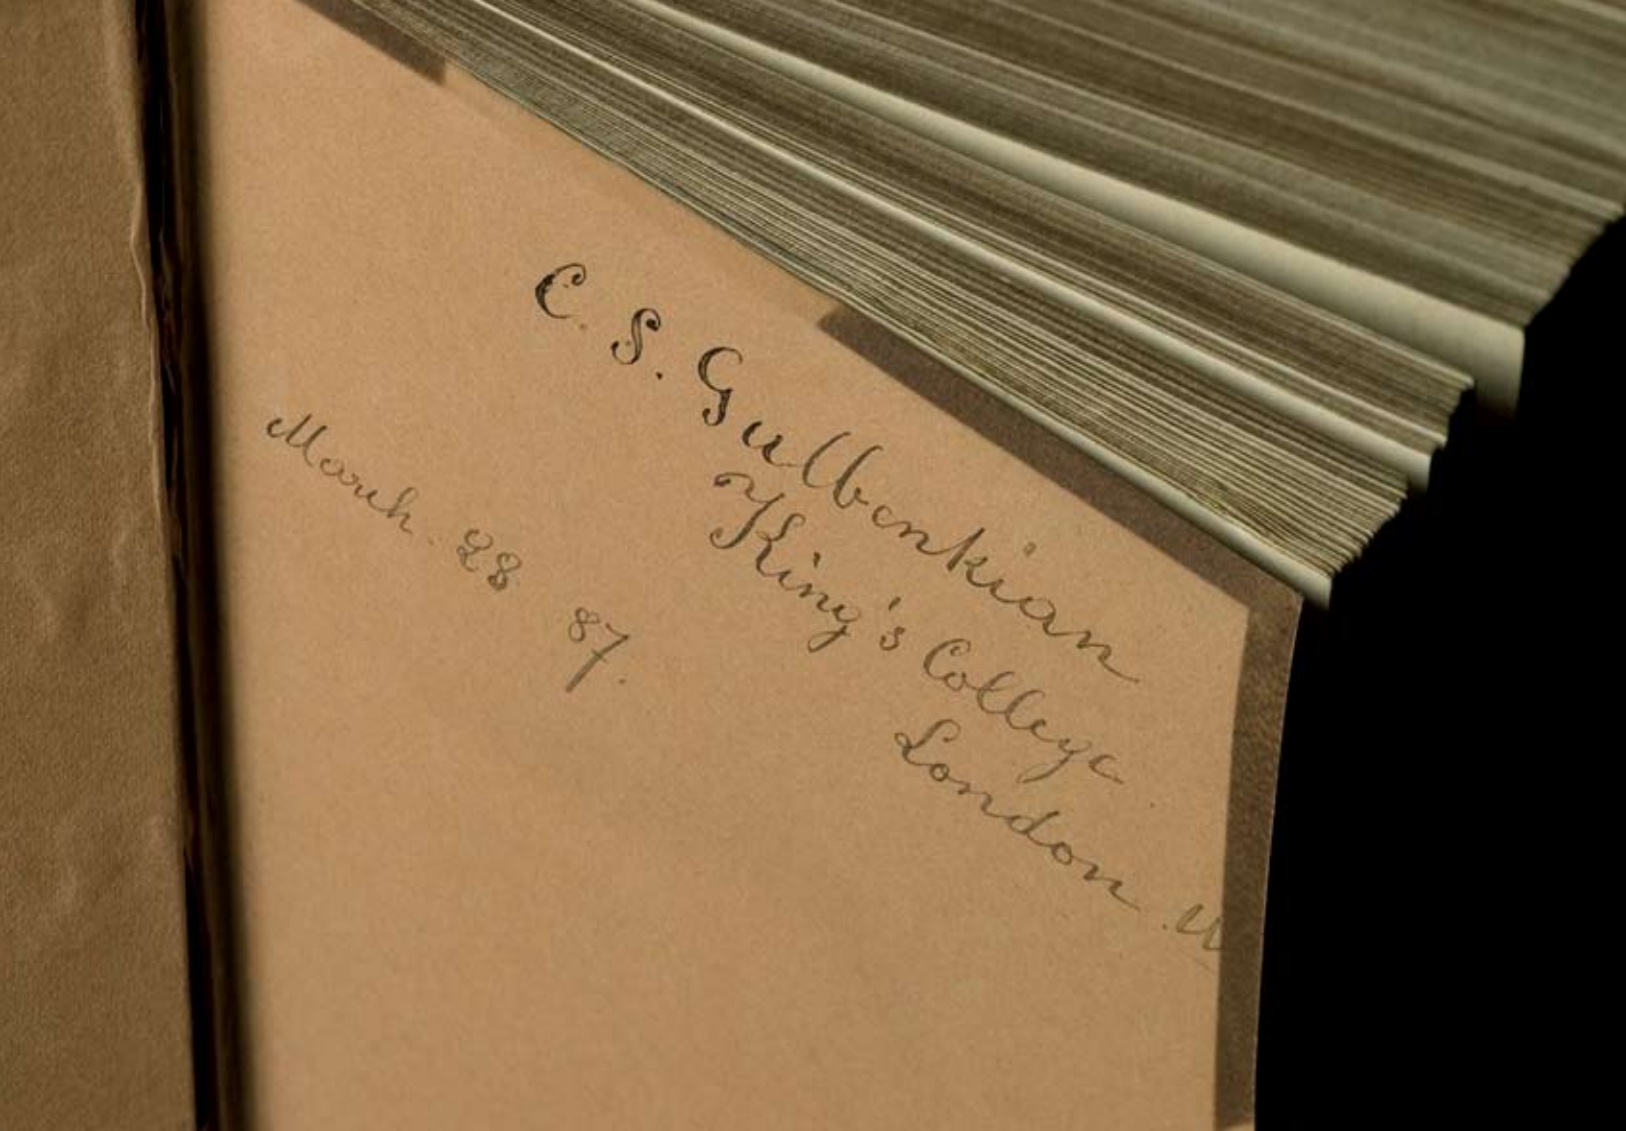 C. S. Gulbenkian
King's College
London W
March. 28 87.